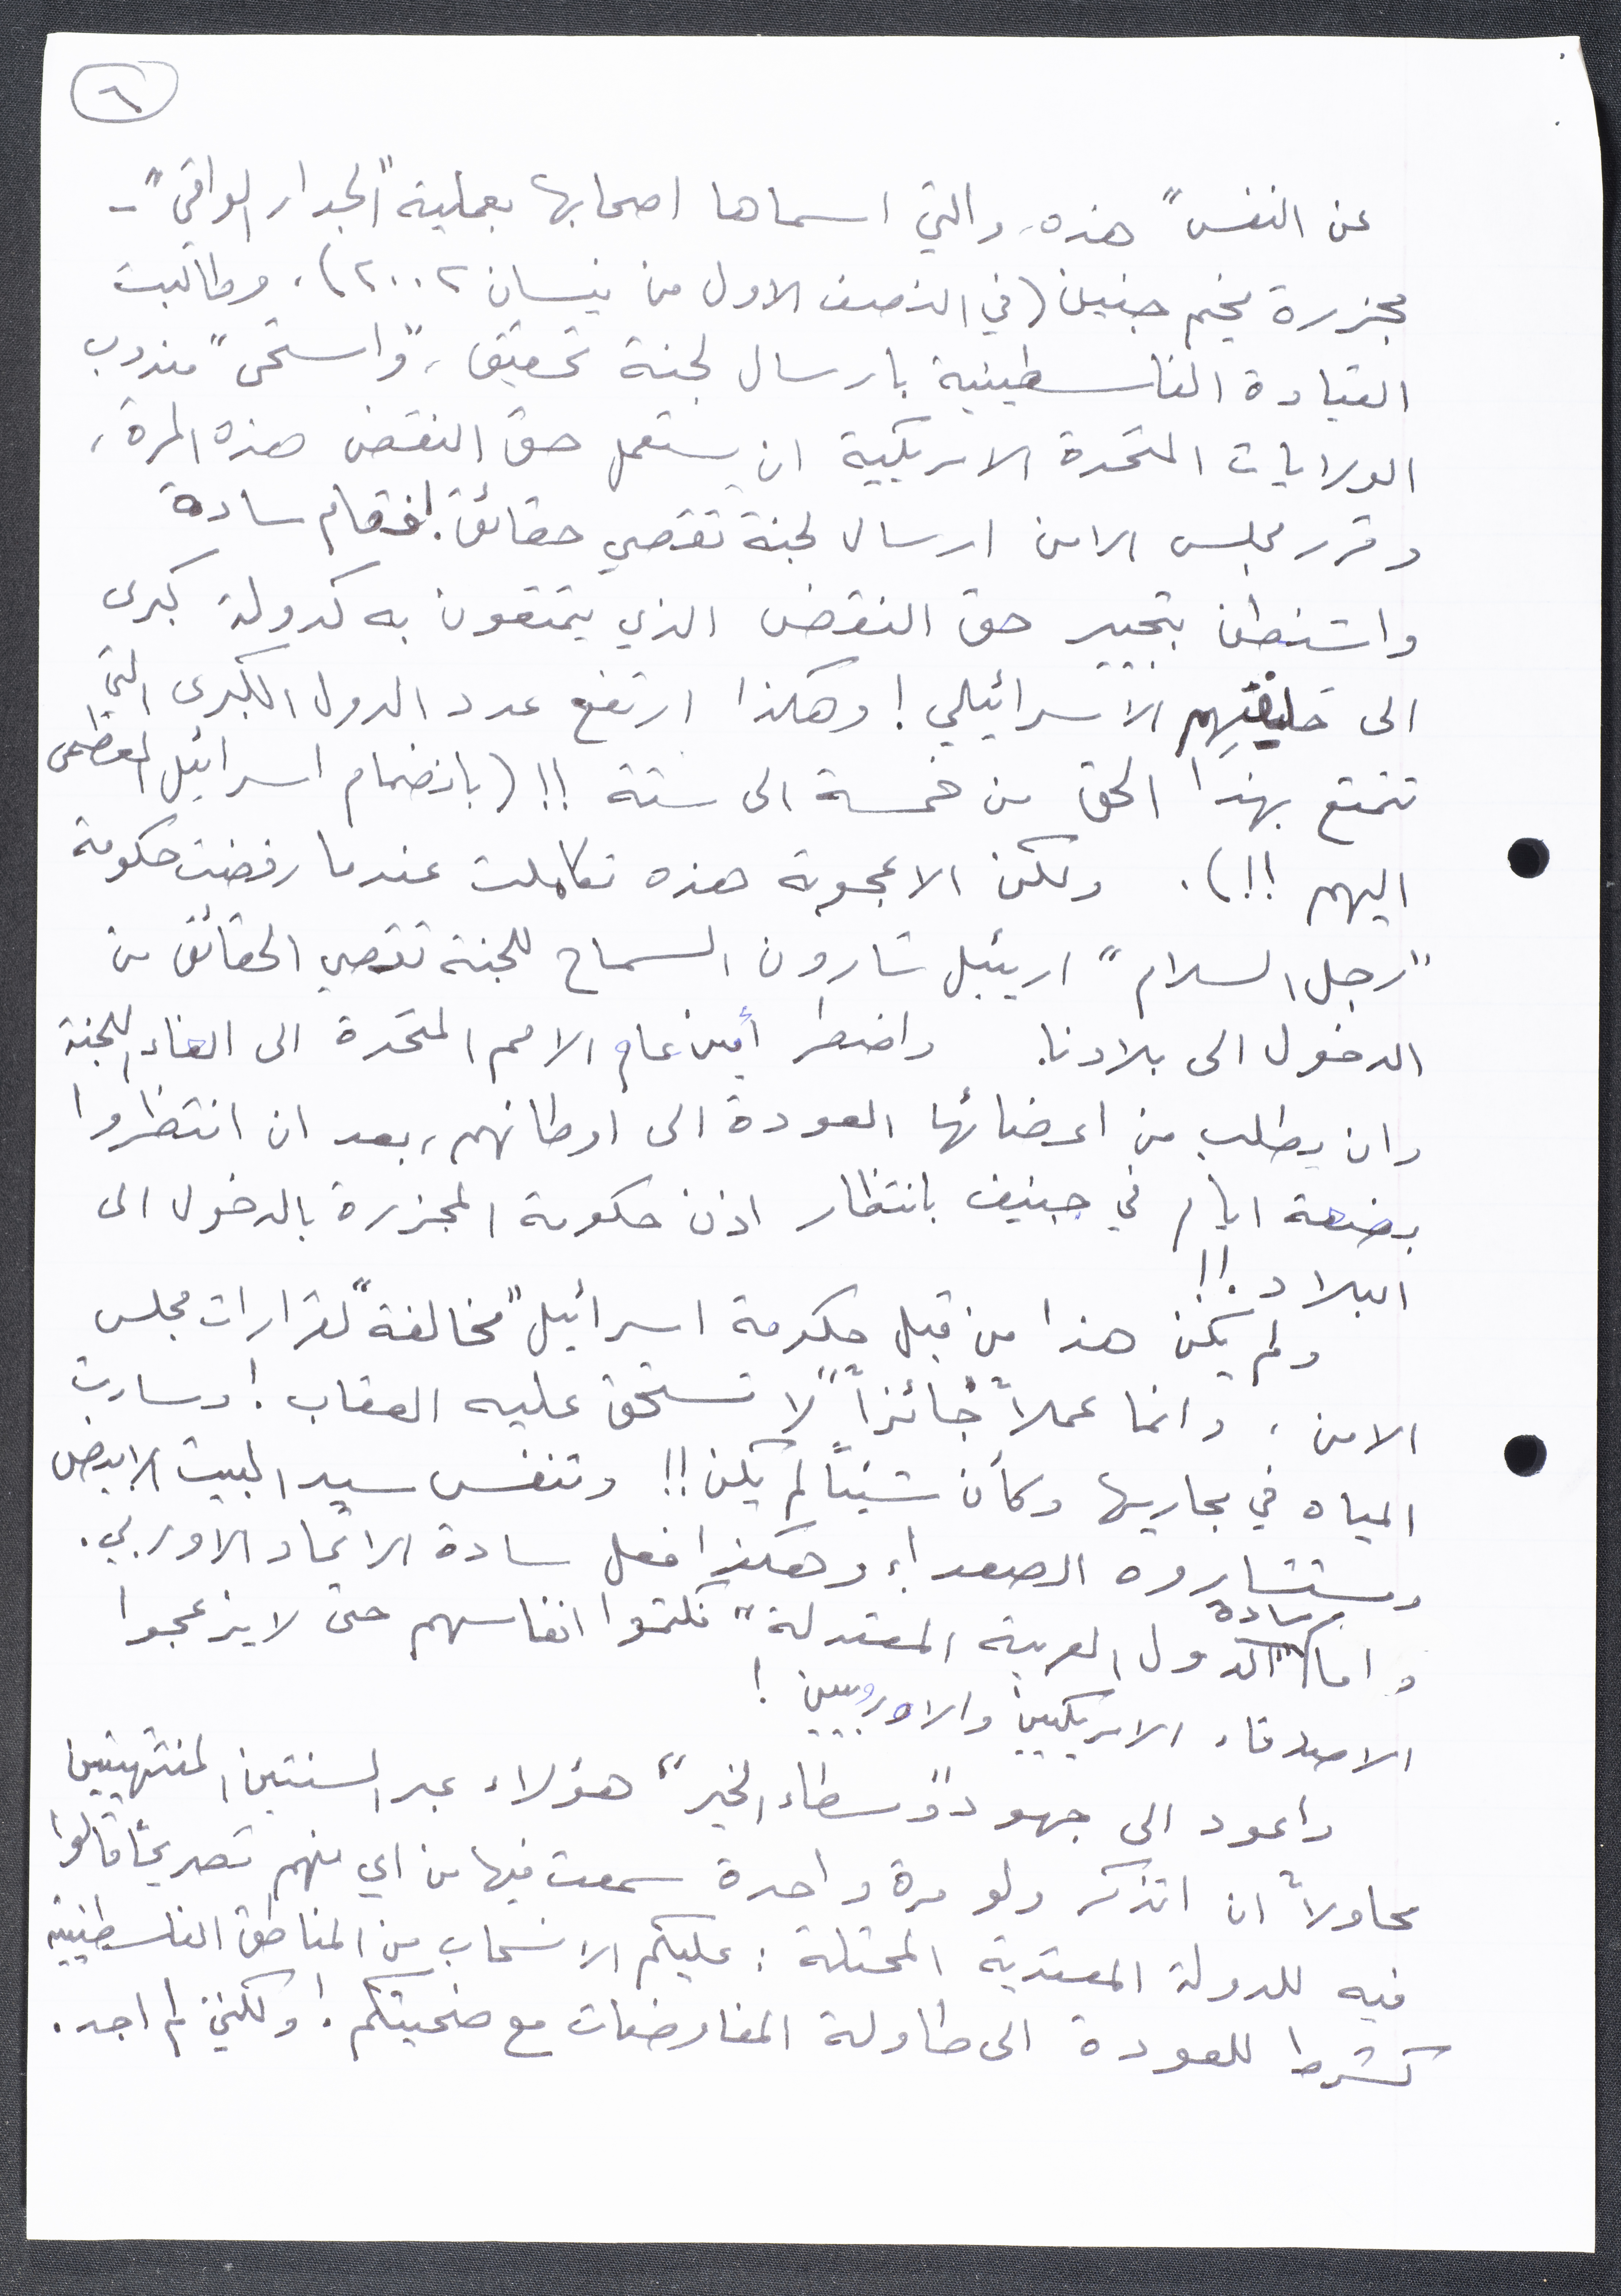 ٦
عن النفس" هذه، والتي اسماها اصحابها بعملية "الجدار الواقي" -
مجزرة مخيم جنين (في النصف الاول من نيسان ٢٠٠٢). وطالبت
القيادة الفلسطينية بارسال لجنة تحقيق، و"استحى" مندوب
الولايات المتحدة الامريكية ان يستعمل حق النقض هذه المرة،
وقرر مجلس الامن ارسال لجنة تقصي حقائق! فقام سادة
واشنطن بتجيير حق النقض الذي يتمتعون به كدولة كبرى
الى حليفتهم الاسرائيلي! وهكذا ارتفع عدد الدول الكبرى التي
تتمتع بهذا الحق من خمسة الى ستة!! (بانضمام اسرائيل العظمى
اليهم!!). ولكن الاعجوبة هذه تكاملت عندما رفضت حكومة
"رجل السلام" اريئيل شارون السماح للجنة تقصي الحقائق من
الدخول الى بلادنا. واضطر أمين عام الامم المتحدة الى الغاء اللجنة
وان يطلب من اعضائها العودة الى اوطانهم، بعد ان انتظروا
بضعة ايام في جنيف بانتظار اذن حكومة المجزرة بالدخول الى
البلاد!!
ولم يكن هذا من قبل حكومة اسرائيل "مخالفة" لقرارات مجلس
الامن، وانما عملاً "جائزاً" لا تستحق عليه العقاب! وسارت
المياه في مجاريها وكأن شيئاً لم يكن!! وتنفس سيد البيت الابيض
ومستشاروه الصعداء وهكذا فعل سادة الاتحاد الاوربي.
واما سادة "الدول العربية المعتدلة" فكتموا انفاسهم حتى لا يزعجوا
الاصدقاء الامريكيين والاوروبيين!
واعود الى جهود "وسطاء الخير" هؤلاء عبر السنتين المنتهيتين
محاولاً ان اتذكر ولو مرة واحدة سمعت فيها من اي منهم تصريحاً قالوا
فيه للدولة المعتدية المحتلة: عليكم الانسحاب من المناطق الفلسطينية
كشرط للعودة الى طاولة المفاوضات مع ضحيتكم! ولكني لم اجد.